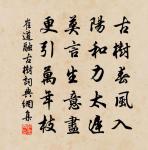 古樹春風入
陽和力太遲
莫言生意盡
更引萬年枝
崔道融古樹詞典網集